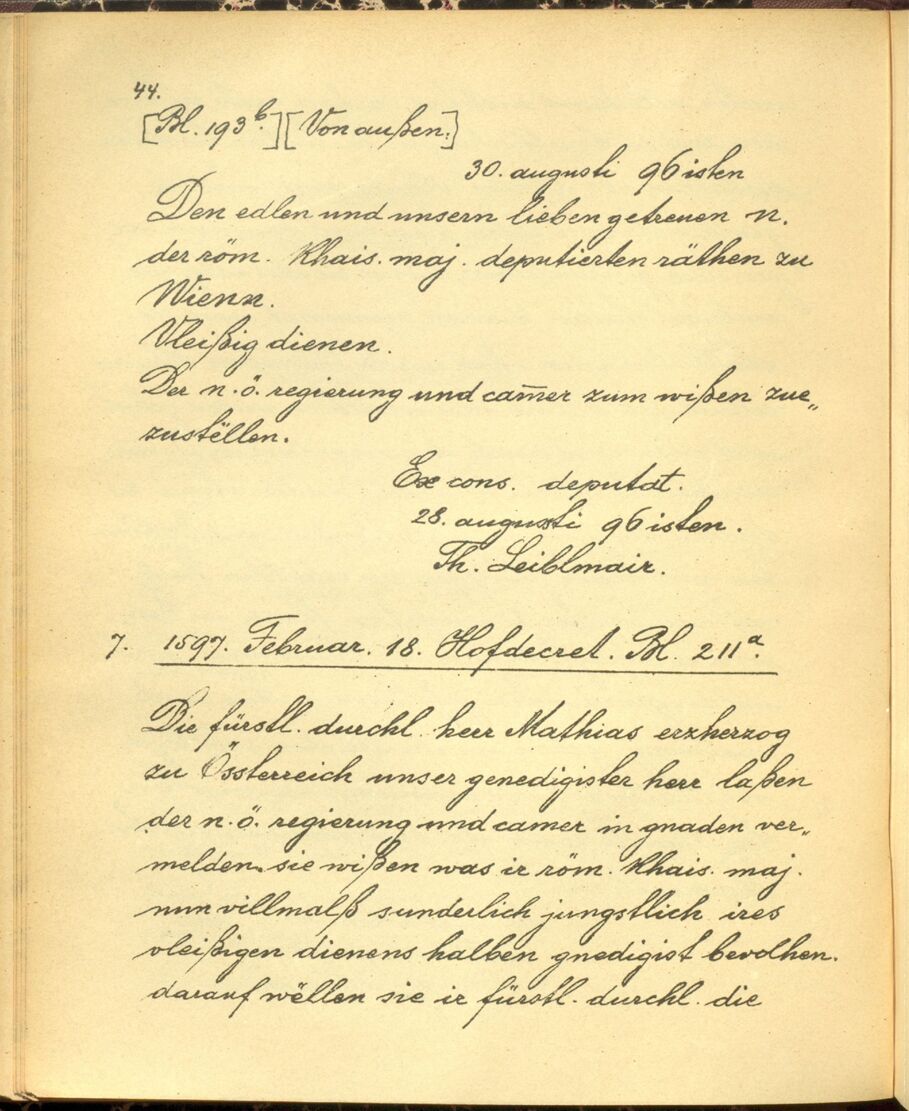 44.
[Bl. 193b.] [Von außen:]
30. augusti 96isten
Den edlen und unsern lieben getreuen N.
der röm. khais. maj. deputierten räthen zu
Wienn.
Vleißig dienen.
Der n.ö. regierung und cam̄er zum wißen zue„
zustëllen.
Ex cons. deputat.
28. augusti 96isten.
Th. Leiblmair.
7. 1597. Februar. 18. Hofdecret. Bl. 211a.
Die fürstl. durchl. herr Mathias erzherzog
zu Össterreich unser genedigister herr laßen
der n.ö. regierung und camer in gnaden ver„
melden. sie wißen was ir röm. khais. maj.
nun villmalß sunderlich jungstlich ires
vleißigen dienens halben gnedigist bevolhen.
darauf wëllen sie ir fürstl. durchl. die